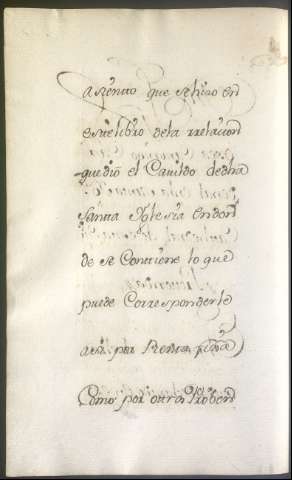 asiento que se hizo en
este libro de la rrelacion
que dio el Cavildo de dha
Santa Iglesia en don
de se Contiene lo que
puede Corresponderle
asi por Renta
Como por otra